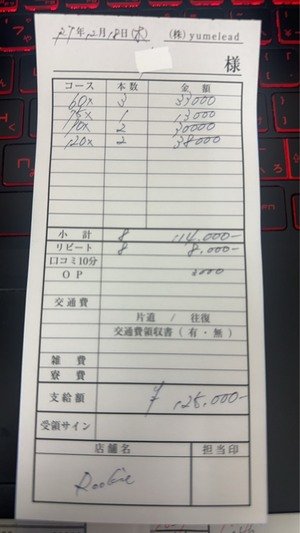 7年12月18日(木) (株)yumelead
様
コース 本数 金額
60x 3 33000
75x 1 13000
90x 2 30000
120x 2 38000
小計 8 114,000-
リピート 8 8,000-
口コミ10分
OP 3000
交通費
片道 / 往復
交通費領収書(有・無)
雑費
寮費
支給額 ¥125,000-
受領サイン
店舗名 担当印
Rookie